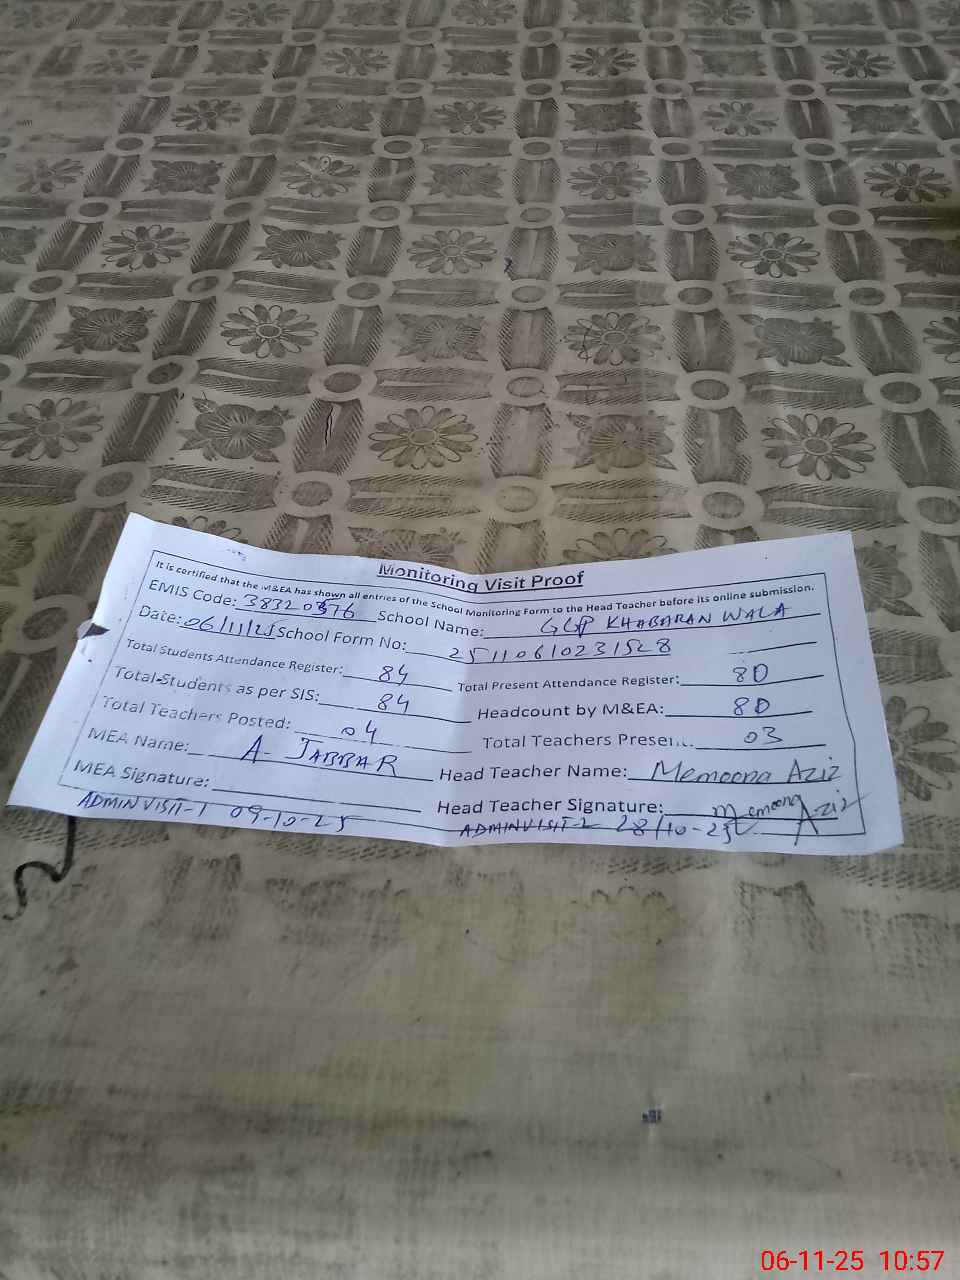 Monitoring Visit Proof
It is certified that the M&EA has shown all entries of the School Monitoring Form to the Head Teacher before its online submission.
EMIS Code: 38320376 School Name: GGP KHABARAN WALA
Date: 06/11/25 School Form No: 2511061023 1528
Total Students Attendance Register: 84 Total Present Attendance Register: 80
Total Students as per SIS: 84 Headcount by M&EA: 80
Total Teachers Posted: 04 Total Teachers Present: 03
MEA Name: A. JABBAR Head Teacher Name: Memoona Aziz
MEA Signature: Head Teacher Signature: Memoona Aziz
ADMIN VISIT-1 09-10-25 ADMIN VISIT-2 28/10-25
06-11-25 10:57